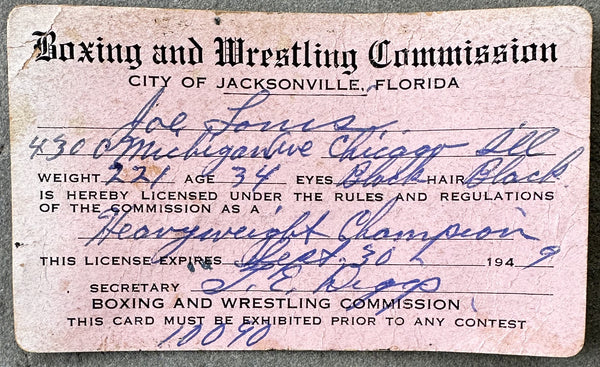 Boxing and Wrestling Commission
CITY OF JACKSONVILLE, FLORIDA
Joe Louis
4300 Michigan Ave Chicago Ill
WEIGHT 221 AGE 34 EYES Black HAIR Black
IS HEREBY LICENSED UNDER THE RULES AND REGULATIONS
OF THE COMMISSION AS A
Heavyweight Champion
THIS LICENSE EXPIRES Sept. 30 1949
SECRETARY J. E. Diggs
BOXING AND WRESTLING COMMISSION
THIS CARD MUST BE EXHIBITED PRIOR TO ANY CONTEST
10090